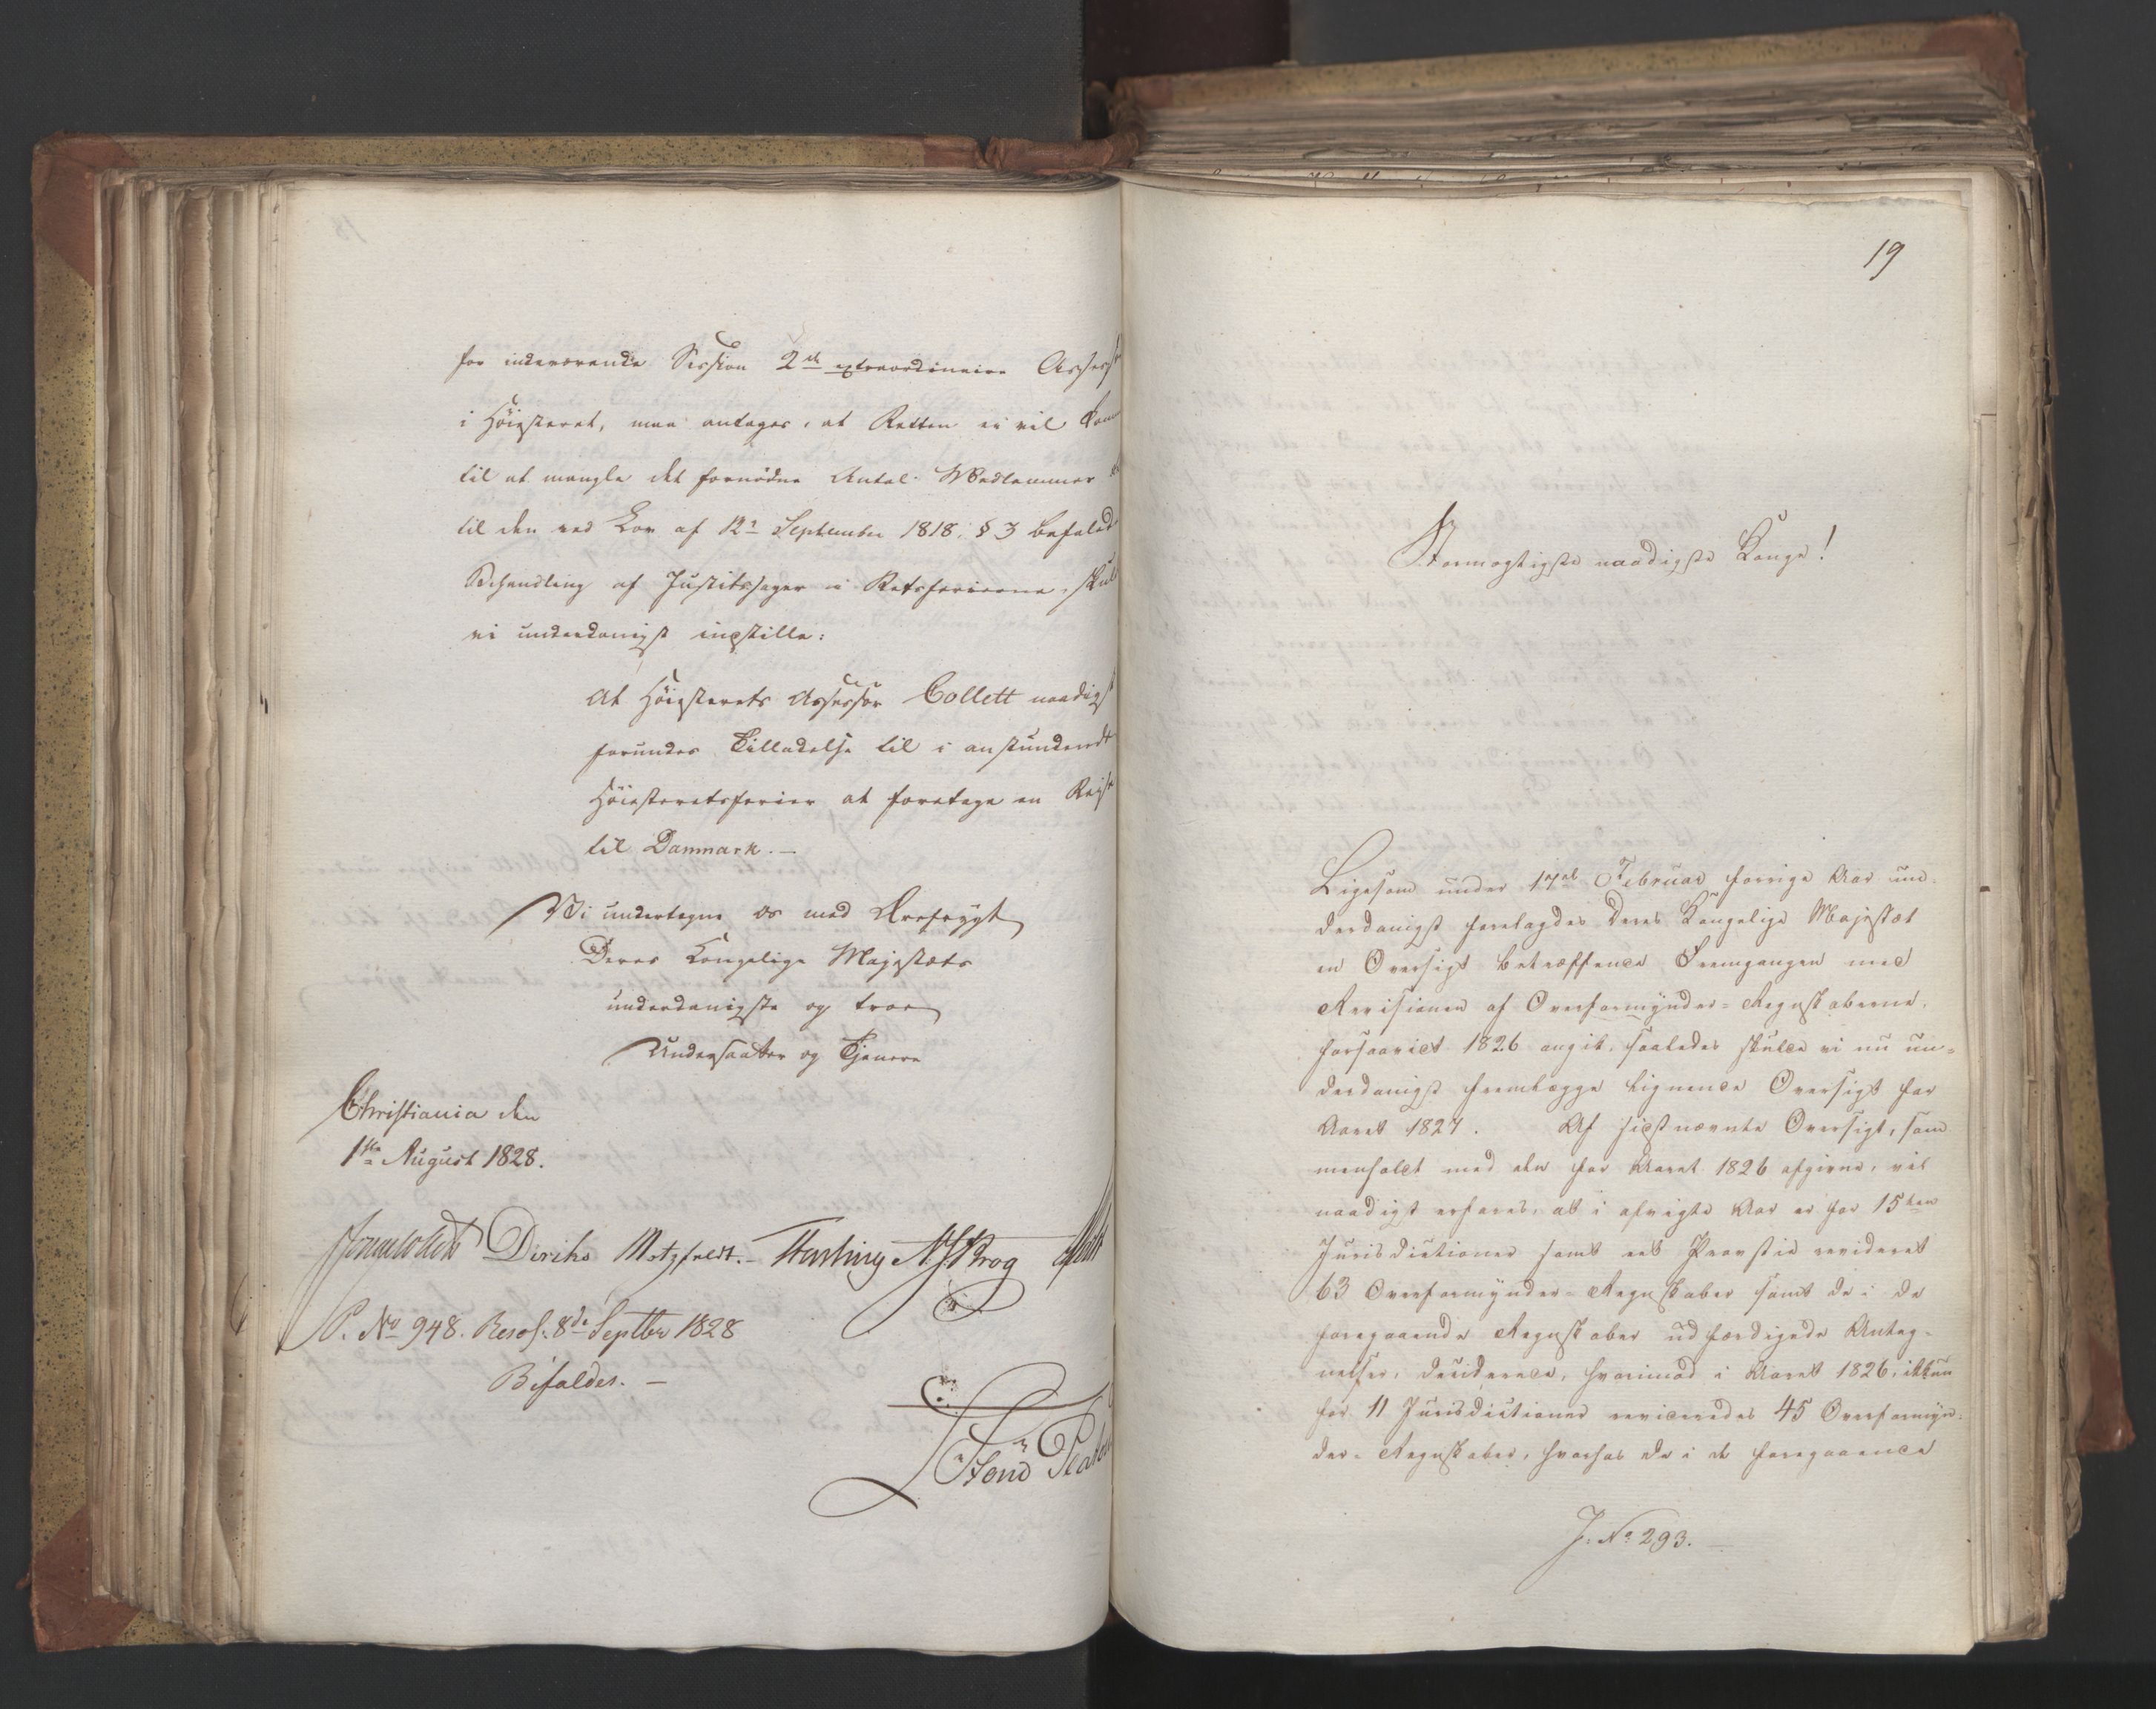 for indeværende Session 2den extraordinaire Assess
i Høiesteret, maa antages, at Retten ei vil kom
til at mangle det fornødne Antal Medlemmer
til den ved Lov af 12te September 1818, § 3 befaled
Behandling af Justitssager i Retsferierne, skul
vi underdanigst indstille:
At Høiesterets Assessor Collett naadigst
forundes Tilladelse til i anstundende
Høiesteretsferier at foretage en Reise
til Danmark. —
Vi undertegne os med Ærefrygt
Deres Kongelige Majestæts
underdanigste og troe
Undersaatter og Tjenere
Christiania den
1ste August 1828.
Diriks Motzfeldt. — N. J. Krog
P. No 948. Resol: 8de Septbr 1828
Bifaldes. —
19
Stormægtigste naadigste Konge!
Ligesom under 17de Februar forrige Aar un-
derdanigst forelagdes Deres Kongelige Majestæt
en Oversigt betræffende Fremgangen med
Revisionen af Overformynder-Regnskaberne,
forsaavidt 1826 angik, saaledes skulle vi nu un-
derdanigst fremlægge lignende Oversigt for
Aaret 1827. Af sidstnævnte Oversigt, sam
menholdt med den for Aaret 1826 afgivne, vil
naadigst erfares, at i afvigte Aar er for 15ten
Jurisdictioner samt eet Provstie revideret
63 Overformynder-Regnskaber samt de i de
foregaaende Regnskaber udfærdigede Anteg-
nelser, deciderede, hvorimod i Aaret 1826, ikkun
for 11 Jurisdictioner revideredes 45 Overformyn-
der-Regnskaber, hvorhos de i de foregaaende
J. No 293. —